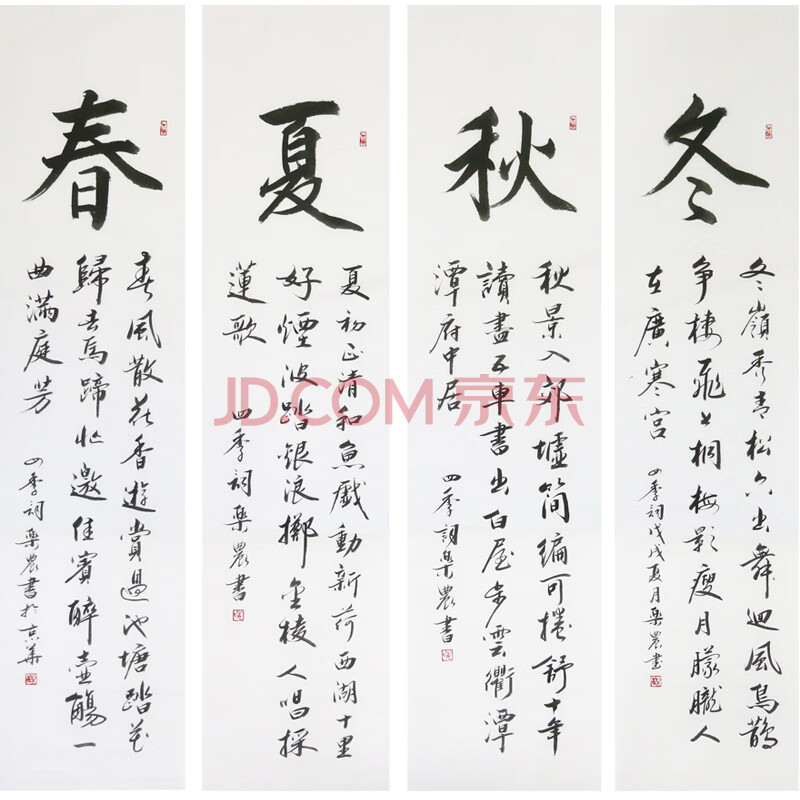 春
春風散花香遊賞過池塘踏花
歸去馬蹄忙邀佳賓醉壺觴一
曲滿庭芳
四季詞樂農書於京華
夏
夏初正清和魚戲動新荷西湖十里
好煙波踏銀浪擲金梭人唱採
蓮歌
四季詞樂農書
秋
秋景入郊墟簡編可捲舒十年
讀盡五車書出白屋步雲衢潭
潭府中居
四季詞樂農書
冬
冬嶺秀青松六出舞迴風烏鵲
争棲飛上桐梅影瘦月朦朧人
在廣寒宮
四季詞戊戌夏月樂農書
JD.COM 京东